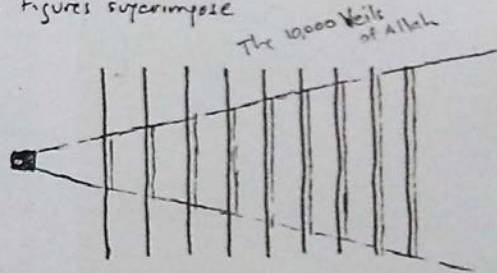 Figures superimpose
The 10,000 Veils
of Allah